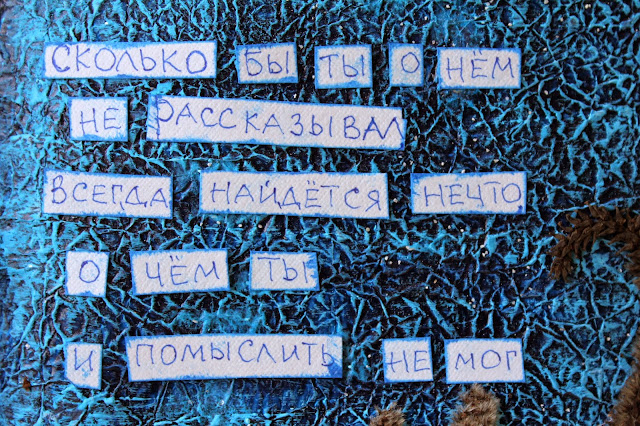 СКОЛЬКО БЫ ТЫ О НЁМ
НЕ РАССКАЗЫВАЛ
ВСЕГДА НАЙДЁТСЯ НЕЧТО
О ЧЁМ ТЫ
И ПОМЫСЛИТЬ НЕ МОГ